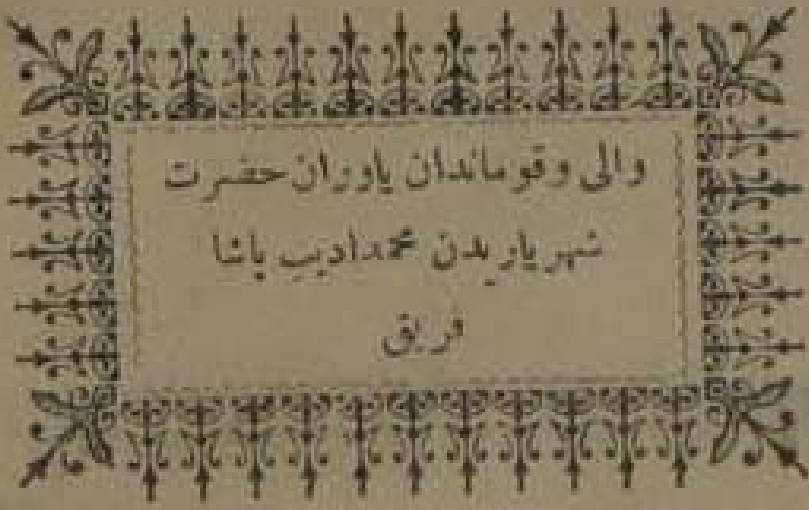 والی وقوماندان یاوران حضرت
شهریاریدن محمد ادیب پاشا
فریق